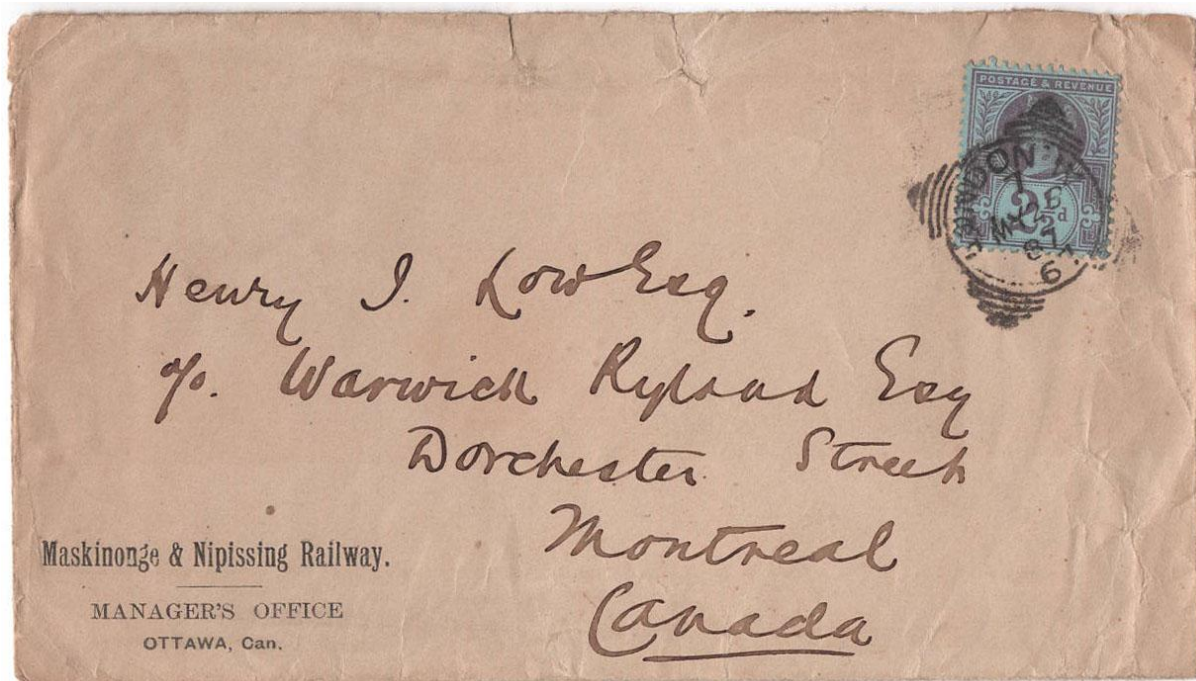 POSTAGE & REVENUE
2½d
LONDON W
7
MY 26
87
6
Henry J. Low Esq.
c/o. Warwick Ryland Esq
Dorchester Street
Montreal
Canada
Maskinonge & Nipissing Railway.
MANAGER'S OFFICE
OTTAWA, Can.